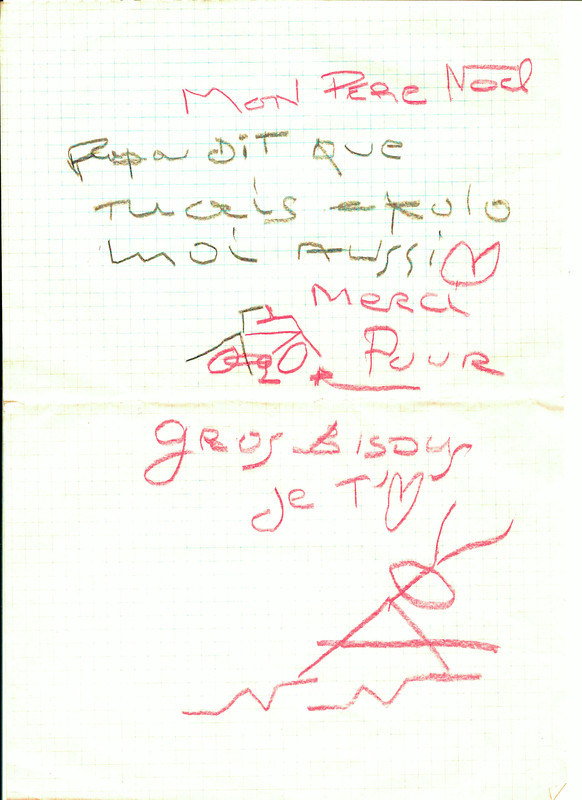 MON PERE NOËL
Papa DIT QUE
TU CEIS EKOLO
MOI AUSSI
Merci
POUR
gros Bisous
je T'